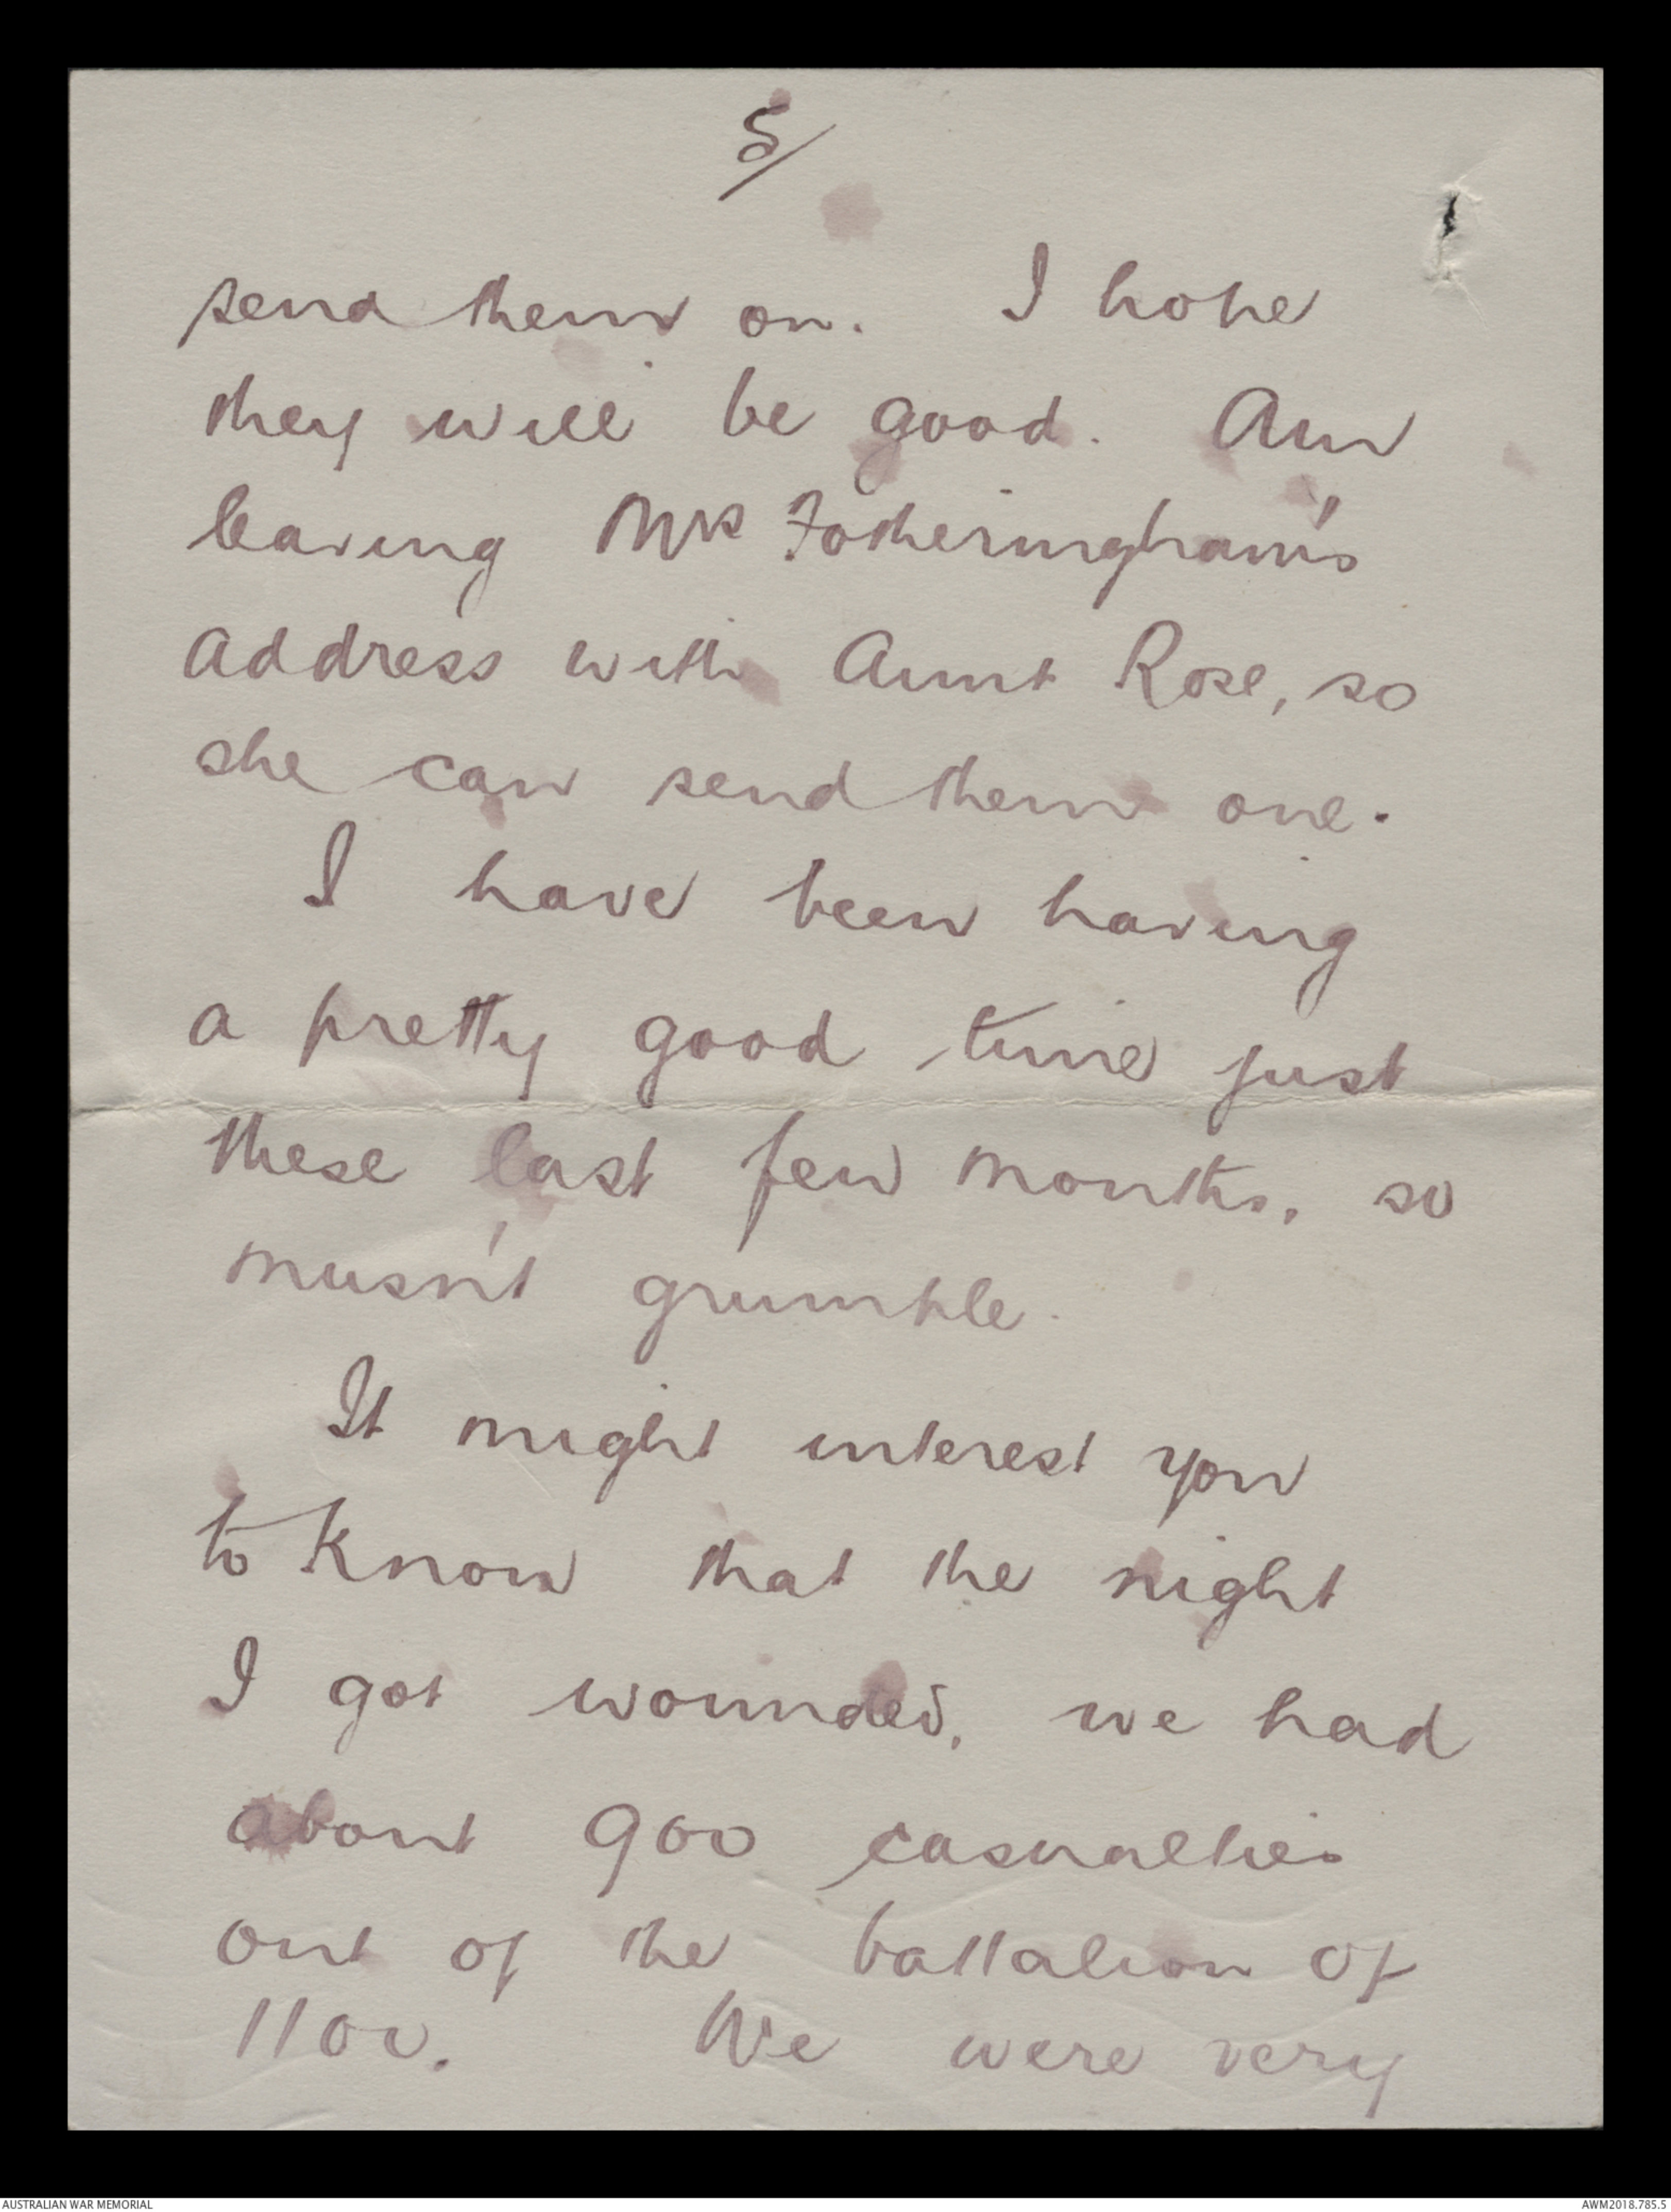 5/
send them on. I hope
they will be good. Am
leaving Mrs Fotheringham's
address with Aunt Rose, so
she can send them one.
I have been having
a pretty good time just
these last few months, so
musn't grumble.
It might interest you
to know that the night
I got wounded, we had
about 900 casualties
out of the battalion of
1100. We were very
AUSTRALIAN WAR MEMORIAL
AWM2018.785.5